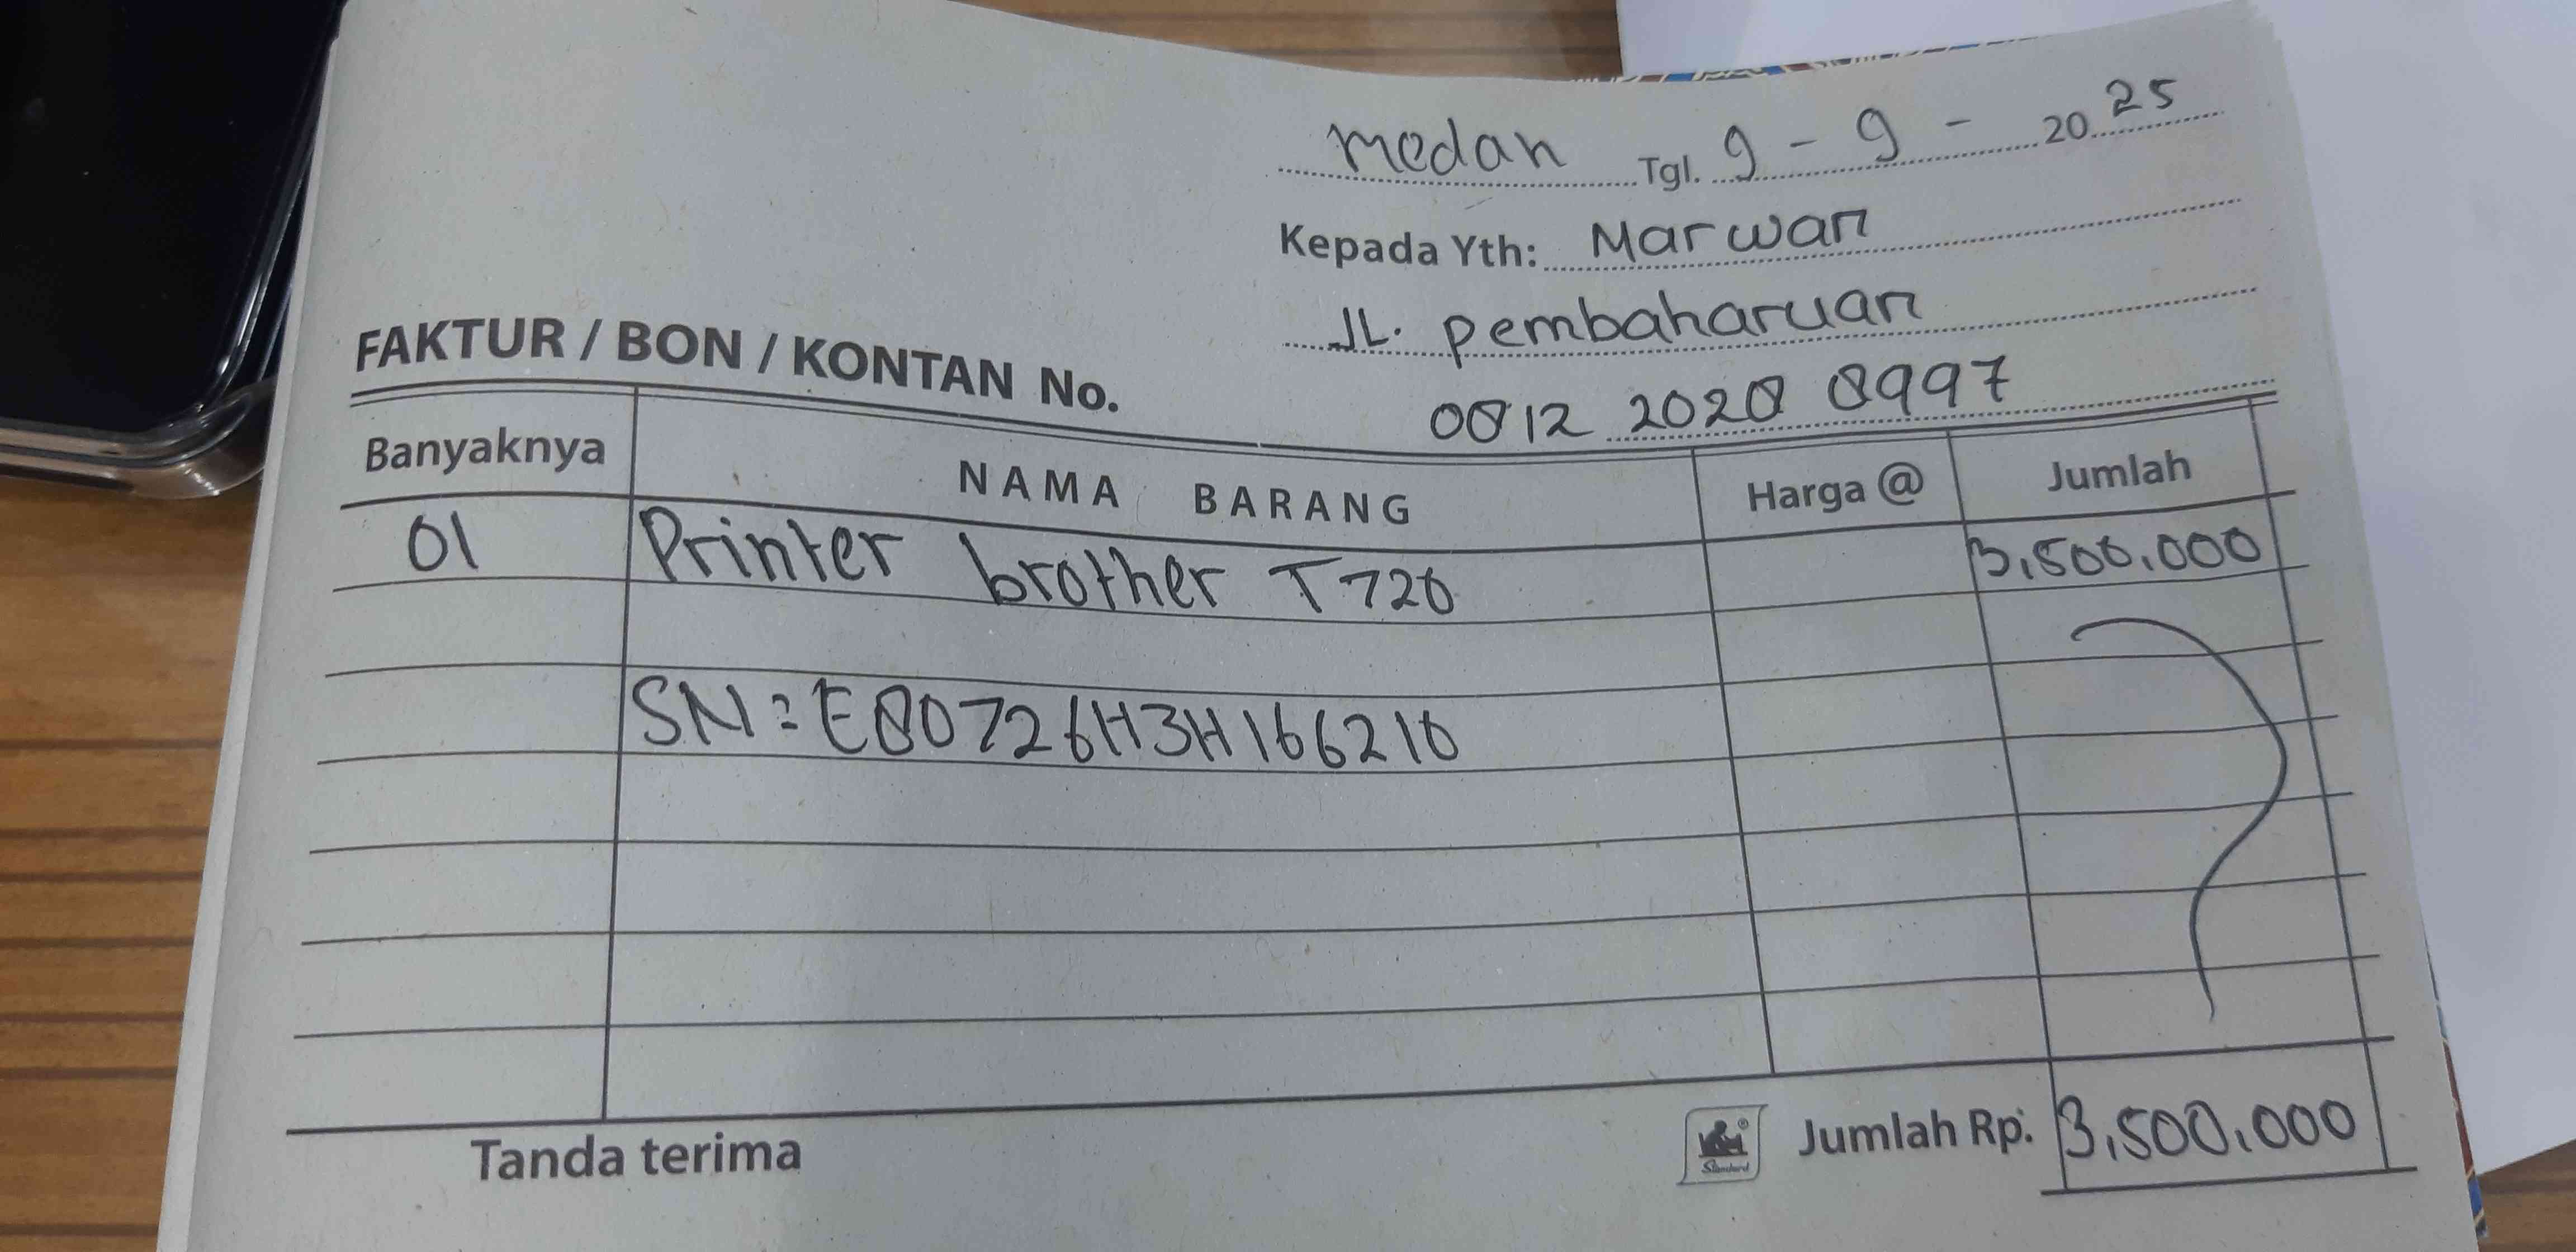 medan Tgl. 9 - 9 - 2025
Kepada Yth: Marwan
JL. pembaharuan
0812 2028 8997
FAKTUR / BON / KONTAN No.
Banyaknya NAMA BARANG Harga @ Jumlah
01 Printer brother T720 3,500.000
SN : E80726H3H166210
Tanda terima Jumlah Rp. 3,500.000
Standard